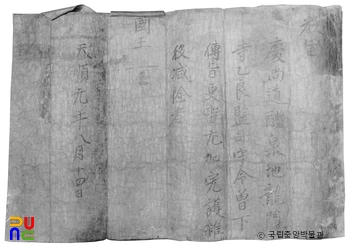 慶尚道醴泉地龍門
寺乙良監司守令曾下
傳旨更審尤加完護雜
役減除者
國王
天順元年八月十四日
© 국립중앙박물관